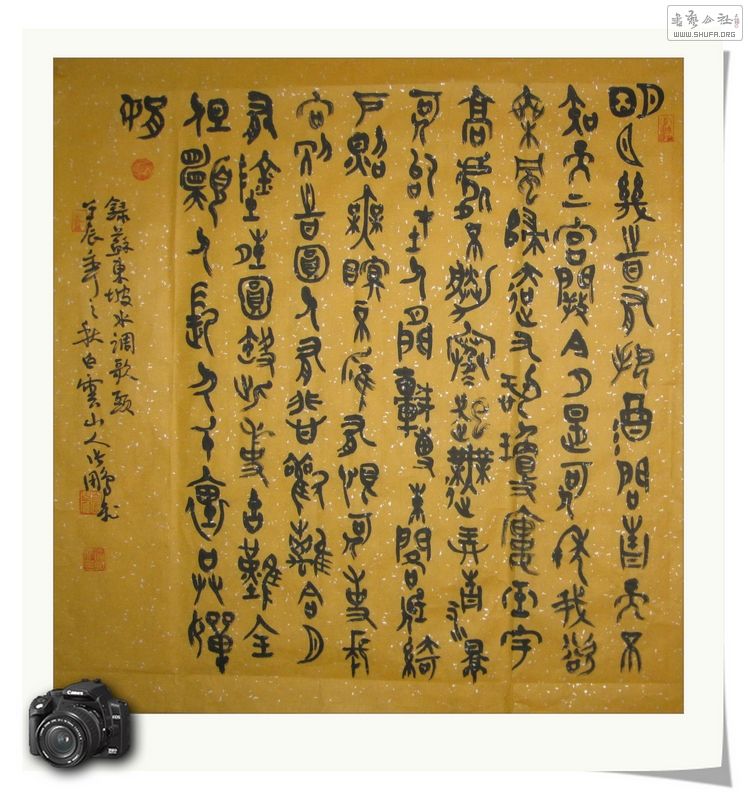 書藝公社
WWW.SHUFA.ORG
明月幾時有把酒問青天不
知天上宮闕今夕是何年我欲
乘風歸去又恐瓊樓玉宇
高處不勝寒起舞弄清影
何似在人間轉朱閣低綺
戶照無眠不應有恨何事長
向別時圓人有悲歡離合月
有陰晴圓缺此事古難全
但願人長久千里共嬋
娟
錄蘇東坡水調歌頭
壬辰年之秋白雲山人張鵬
Canon
EOS